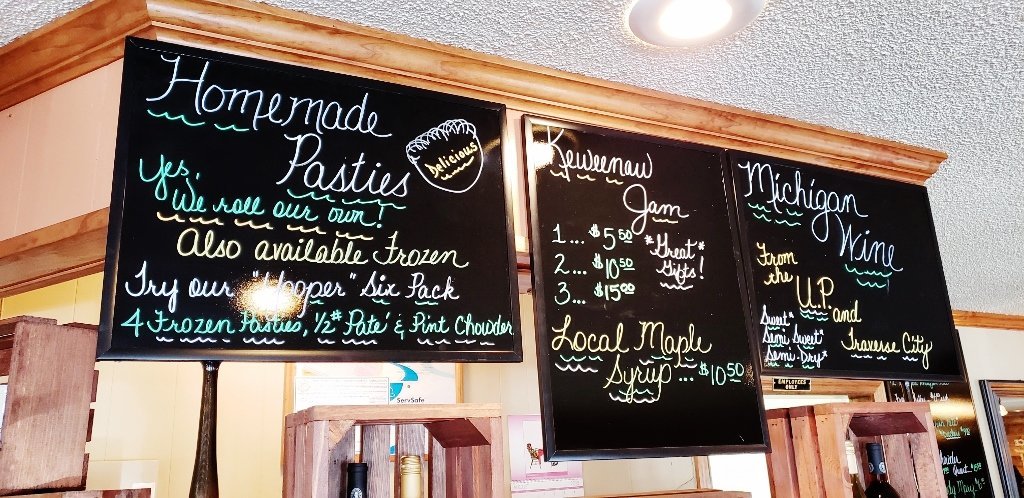 Homemade
Pasties
Delicious
Yes,
We roll our own!
Also available Frozen
Try our "Yooper" Six Pack
4 Frozen Pasties, 1/2# Pate' & Pint Chowder
Keweenaw
Jam
1... $5.50
2... $10.50
3... $15.00
*Great*
Gifts!
Local Maple
Syrup... $10.50
Michigan
Wine
From
the
U.P. and
Traverse City
Sweet*
Semi Sweet*
Semi-Dry*
ServSafe
EMPLOYEES
ONLY